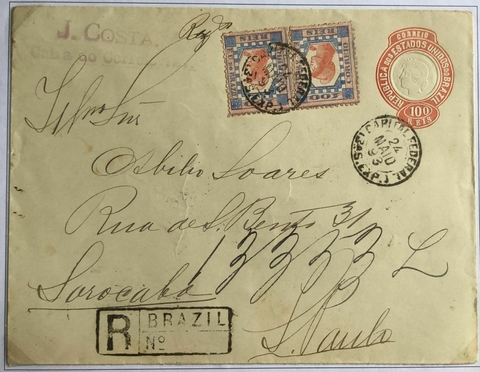 J. COSTA.
Caixa do Correio
REIS
REIS
100
CORREIO
REPUBLICA DOS ESTADOS UNIDOS DO BRAZIL
100
REIS
CAPITAL FEDERAL
24
MAIO
93
Illmo Snr
Abilio Soares
Rua de S. Bento 31
13353 L
Sorocaba
S. Paulo
R BRAZIL
Nº